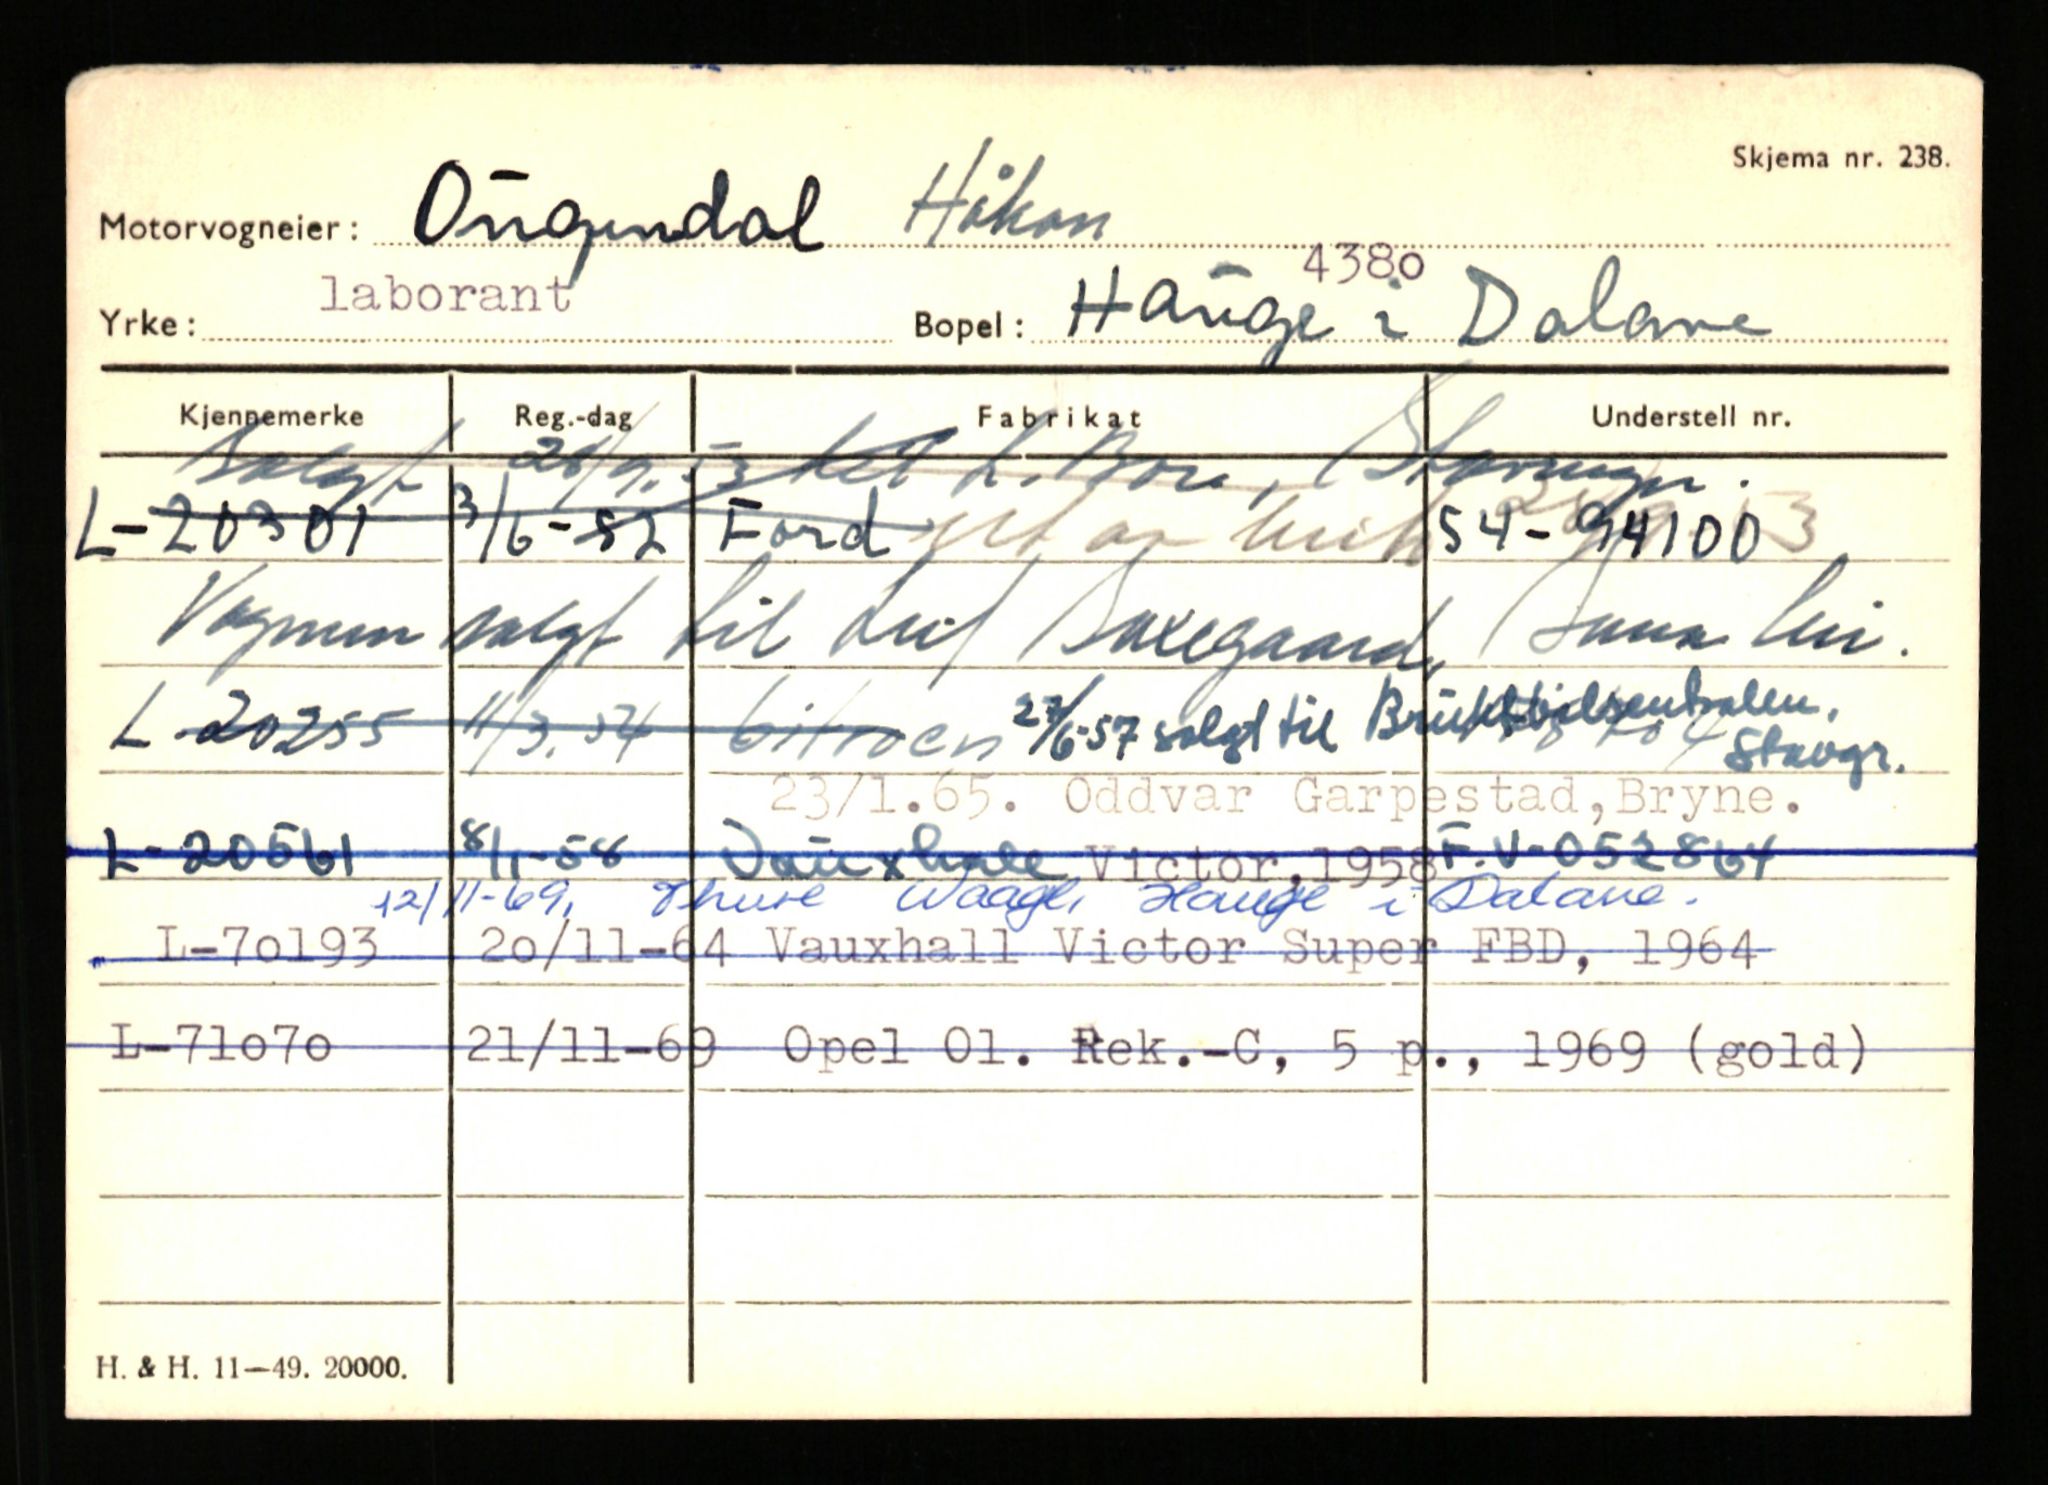 Skjema nr. 238.
Motorvogneier: Oūgendal Håkon
4380
Yrke: laborant Bopel: Haūge i Dalane
Kjennemerke Reg.-dag Fabrikat Understell nr.
Solgt 28/9.53 til L. Bore, Stavanger.
L-20301 3/6-52 Ford 54-94100
Vognen solgt til Leif Saxegaard, Sauna
L-20255 11/3.54 Citroen 27/6-57 solgt til Brūktbilsentralen, Stavgr.
23/1.65. Oddvar Garpestad, Bryne.
L-20561 8/1-58 Vaūxhall Victor, 1958 F.V-052864
12/11-69, Waage, Hauge i Dalane.
L-70193 20/11-64 Vauxhall Victor Super FBD, 1964
L-71070 21/11-69 Opel Ol. Rek.-C, 5 p., 1969 (gold)
H. & H. 11—49. 20000.